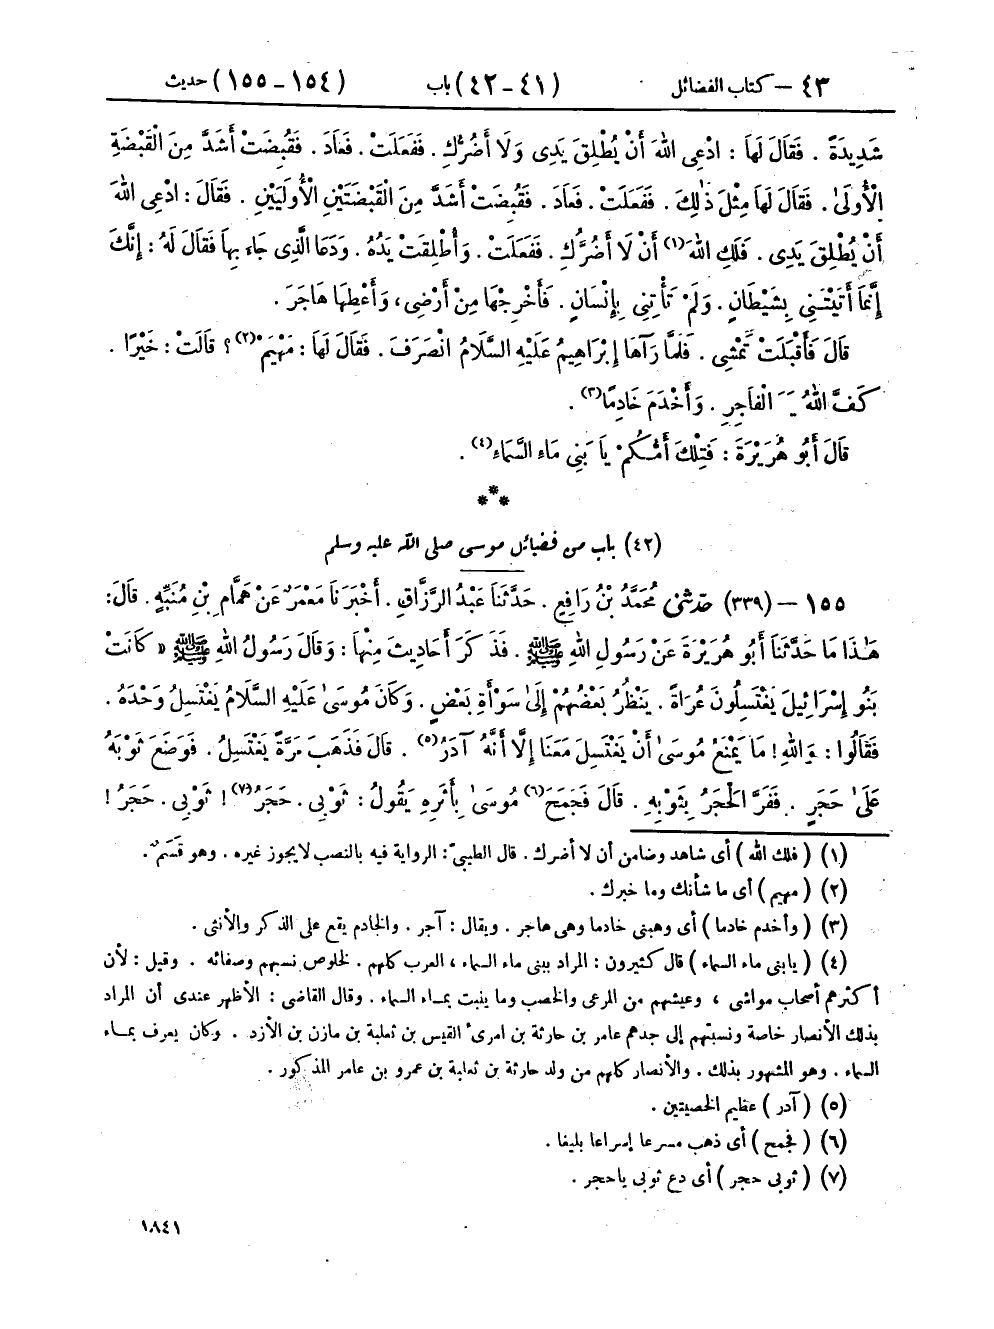 ٤٣ – كتاب الفضائل (٤١-٤٢) باب (١٥٤-١٥٥) حديث
شَدِيدَةً . فَقَالَ لَهَا : ادْعِى اللهَ أَنْ يُطْلِقَ يَدِى وَلَا أَضُرُّكِ . فَفَعَلَتْ . فَعَادَ . فَقُبِضَتْ أَشَدَّ مِنَ الْقَبْضَةِ
الْأُولَىٰ . فَقَالَ لَهَا مِثْلَ ذٰلِكَ . فَفَعَلَتْ . فَعَادَ . فَقُبِضَتْ أَشَدَّ مِنَ الْقَبْضَتَيْنِ الْأُولَيَيْنِ . فَقَالَ : ادْعِى اللهَ
أَنْ يُطْلِقَ يَدِى . فَلَكِ اللهَ (١) أَنْ لَا أَضُرَّكِ . فَفَعَلَتْ . وَأُطْلِقَتْ يَدُهُ . وَدَعَا الَّذِى جَاءَ بِهَا فَقَالَ لَهُ : إِنَّكَ
إِنَّمَا أَتَيْتَنِى بِشَيْطَانٍ . وَلَمْ تَأْتِنِى بِإِنْسَانٍ . فَأَخْرِجْهَا مِنْ أَرْضِى ، وَأَعْطِهَا هَاجَرَ .
قَالَ فَأَقْبَلَتْ تَمْشِى . فَلَمَّا رَآهَا إِبْرَاهِيمُ عَلَيْهِ السَّلَامُ انْصَرَفَ . فَقَالَ لَهَا : مَهْيَمْ (٢) ؟ قَالَتْ : خَيْرًا .
كَفَّ اللهُ يَدَ الْفَاجِرِ . وَأَخْدَمَ خَادِمًا (٣) .
قَالَ أَبُو هُرَيْرَةَ : فَتِلْكَ أُمُّكُمْ يَا بَنِى مَاءِ السَّمَاءِ (٤) .
***
(٤٢) باب من فضائل موسى صلى الله عليه وسلم
١٥٥ – (٣٣٩) حدّثنى مُحَمَّدُ بْنُ رَافِعٍ . حَدَّثَنَا عَبْدُ الرَّزَّاقِ . أَخْبَرَنَا مَعْمَرٌ عَنْ هَمَّامِ بْنِ مُنَبِّهٍ . قَالَ :
هٰذَا مَا حَدَّثَنَا أَبُو هُرَيْرَةَ عَنْ رَسُولِ اللهِ ﷺ . فَذَكَرَ أَحَادِيثَ مِنْهَا : وَقَالَ رَسُولُ اللهِ ﷺ « كَانَتْ
بَنُو إِسْرَائِيلَ يَغْتَسِلُونَ عُرَاةً . يَنْظُرُ بَعْضُهُمْ إِلَىٰ سَوْأَةِ بَعْضٍ . وَكَانَ مُوسَىٰ عَلَيْهِ السَّلَامُ يَغْتَسِلُ وَحْدَهُ .
فَقَالُوا : وَاللهِ ! مَا يَمْنَعُ مُوسَىٰ أَنْ يَغْتَسِلَ مَعَنَا إِلَّا أَنَّهُ آدَرُ (٥) . قَالَ فَذَهَبَ مَرَّةً يَغْتَسِلُ . فَوَضَعَ ثَوْبَهُ
عَلَىٰ حَجَرٍ . فَفَرَّ الْحَجَرُ بِثَوْبِهِ . قَالَ فَجَمَحَ (٦) مُوسَىٰ بِأَثَرِهِ يَقُولُ : ثَوْبِى . حَجَرُ (٧) ! ثَوْبِى . حَجَرُ !
(١) ( فلك الله ) أى شاهد وضامن أن لا أضرك . قال الطيبىّ : الرواية فيه بالنصب لا يجوز غيره . وهو قَسَمٌ .
(٢) ( مهيم ) أى ما شأنك وما خبرك .
(٣) ( وأخدم خادما ) أى وهبنى خادما وهى هاجر . ويقال : آجر . والخادم يقع على الذكر والأنثى .
(٤) ( يابنى ماء السماء ) قال كثيرون : المراد ببنى ماء السماء ، العرب كلهم . لخلوص نسبهم وصفائه . وقيل : لأن
أكثرهم أصحاب مواشى ، وعيشهم من المرعى والخصب وما ينبت بمـاء السماء . وقال القاضى : الأظهر عندى أن المراد
بذلك الأنصار خاصة ونسبتهم إلى جدهم عامر بن حارثة بن امرئ القيس بن ثعلبة بن مازن بن الأزد . وكان يعرف بمـاء
السماء . وهو المشهور بذلك . والأنصار كلهم من ولد حارثة بن ثعلبة بن عمرو بن عامر المذكور .
(٥) ( آدر ) عظيم الخصيتين .
(٦) ( فجمح ) أى ذهب مسرعا إسراعا بليغا .
(٧) ( ثوبى حجر ) أى دع ثوبى ياحجر .
١٨٤١